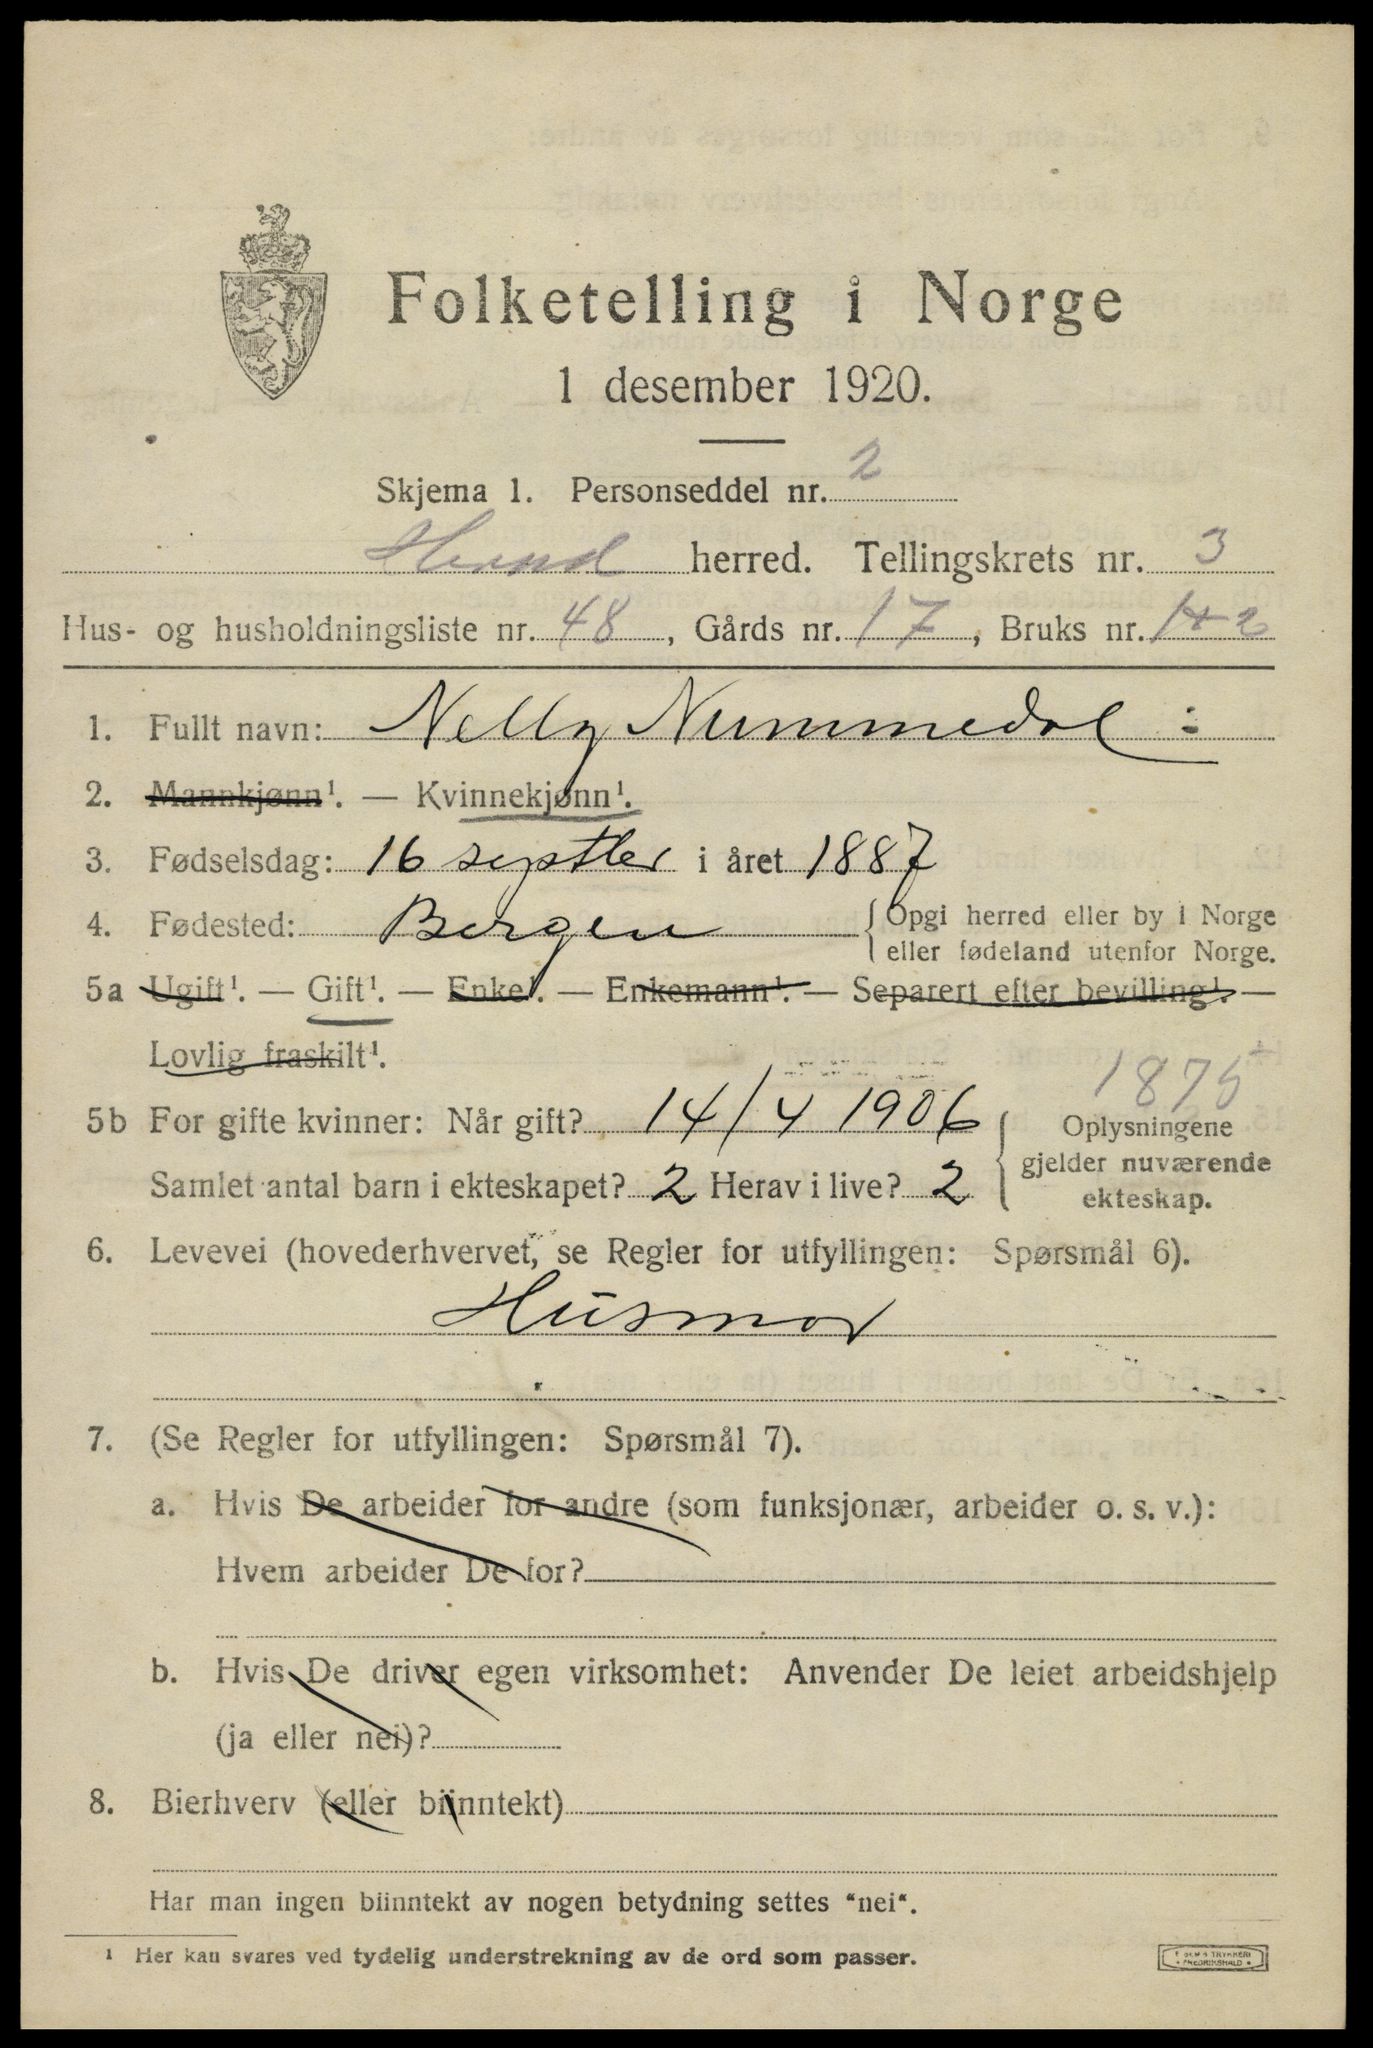 Folketelling i Norge
1 desember 1920.
Skjema 1. Personseddel nr. 2
herred. Tellingskrets nr. 3
Hus- og husholdningsliste nr. 48, Gårds nr. 17, Bruks nr. 1+2
1. Fullt navn: Nelly Nummedal :
2. Mannkjønn¹. — Kvinnekjønn¹.
3. Fødselsdag: 16 septber i året 1887
4. Fødested: Bergen { Opgi herred eller by i Norge
eller fødeland utenfor Norge.
5a Ugift¹. — Gift¹. — Enke¹. — Enkemann¹. — Separert efter bevilling¹. —
Lovlig fraskilt¹.
1875
5b For gifte kvinner: Når gift? 14/4 1906 { Oplysningene
gjelder nuværende
Samlet antal barn i ekteskapet? 2 Herav i live? 2
ekteskap.
6. Levevei (hovederhvervet, se Regler for utfyllingen: Spørsmål 6).
Husmor
7. (Se Regler for utfyllingen: Spørsmål 7).
a. Hvis De arbeider for andre (som funksjonær, arbeider o. s. v.):
Hvem arbeider De for?
b. Hvis De driver egen virksomhet: Anvender De leiet arbeidshjelp
(ja eller nei)?
8. Bierhverv (eller biinntekt)
Har man ingen biinntekt av nogen betydning settes "nei".
¹ Her kan svares ved tydelig understrekning av de ord som passer.
TRYKKERI
FREDRIKSHALD